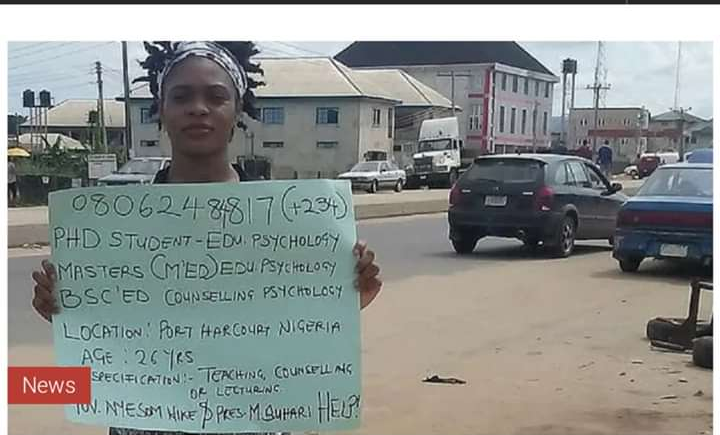 08062484817 (+234)
PHD STUDENT - EDU. PSYCHOLOGY
MASTERS (M'ED) EDU. PSYCHOLOGY
BSC'ED COUNSELLING PSYCHOLOGY
LOCATION: PORT HARCOURT NIGERIA
AGE: 26 YRS
SPECIFICATION:- TEACHING, COUNSELLING
OR LECTURING.
GOV. NYESOM WIKE & PRES. M. BUHARI HELP!
News